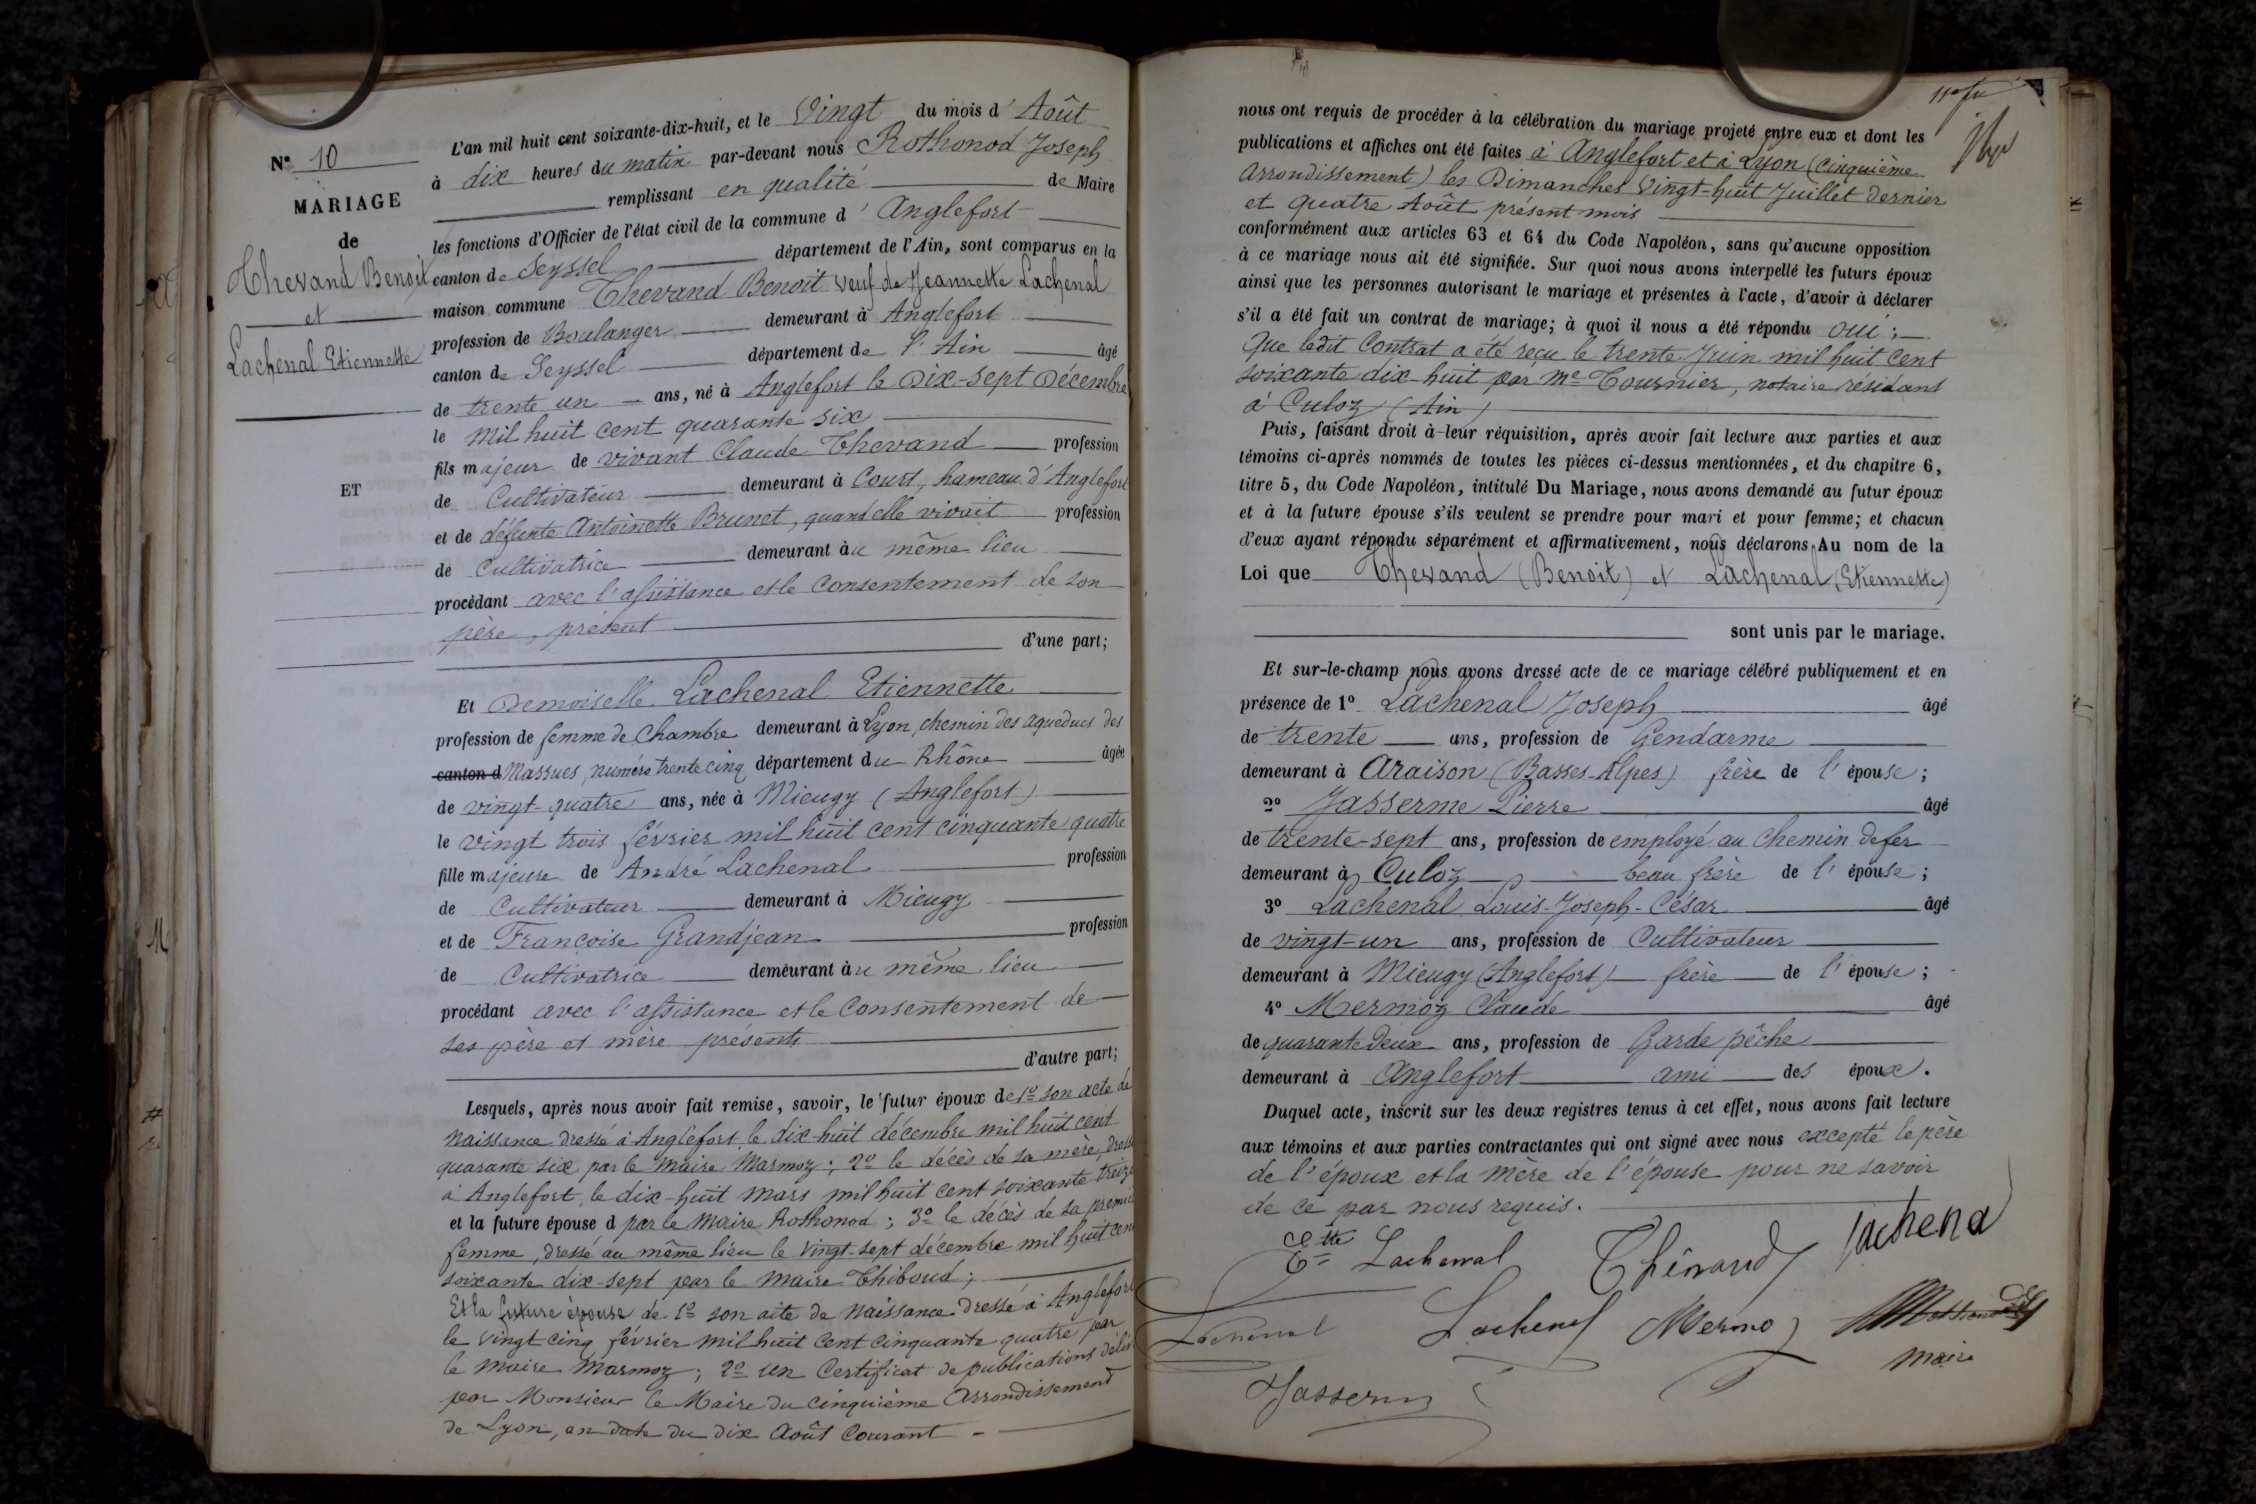 N° 10
MARIAGE
de
Thevand Benoit
et
Lachenal Etiennette
ET
L'an mil huit cent soixante-dix-huit, et le Vingt du mois d'Août
à dix heures du matin par-devant nous Rothonod Joseph
remplissant en qualité de Maire
les fonctions d'Officier de l'état civil de la commune d'Anglefort
canton de Seyssel département de l'Ain, sont comparus en la
maison commune Thevand Benoit veuf de Jeannette Lachenal
profession de Boulanger demeurant à Anglefort
canton de Seyssel département de l'Ain âgé
de trente un ans, né à Anglefort le Dix-sept Décembre
le mil huit cent quarante six
fils majeur de vivant Claude Thevand profession
de Cultivateur demeurant à Court, hameau d'Anglefort
et de défunte Antoinette Brunet, quand elle vivait profession
de Cultivatrice demeurant au même lieu
procédant avec l'assistance et le Consentement de son
père, présent
d'une part;
Et Demoiselle Lachenal Etiennette
profession de femme de Chambre demeurant à Lyon, chemin des aqueducs des
canton d Massues, numéro trente cinq département du Rhône âgée
de vingt-quatre ans, née à Mieugy (Anglefort)
le vingt trois février mil huit cent cinquante quatre
fille majeure de André Lachenal profession
de Cultivateur demeurant à Mieugy
et de Françoise Grandjean profession
de Cultivatrice demeurant au même lieu
procédant avec l'assistance et le Consentement de
ses père et mère présents
d'autre part;
Lesquels, après nous avoir fait remise, savoir, le futur époux de 1° son acte de
naissance dressé à Anglefort le dix-huit décembre mil huit cent
quarante six par le Maire Marmoz; 2° le décès de sa mère,
à Anglefort, le dix-huit mars mil huit cent soixante treize
et la future épouse d par le Maire Rothonod; 3° le décès de sa
femme, dressé au même lieu le vingt-sept décembre mil huit cent
soixante dix-sept par le Maire Thiboud;
Et la future épouse de 1° son acte de naissance dressé à Anglefort
le vingt cinq février mil huit cent cinquante quatre par
le Maire Marmoz; 2° un Certificat de publications
par Monsieur le Maire du cinquième Arrondissement
de Lyon, en date du dix Août Courant
nous ont requis de procéder à la célébration du mariage projeté entre eux et dont les
publications et affiches ont été faites à Anglefort et à Lyon (Cinquième
Arrondissement) les Dimanches Vingt-huit Juillet dernier
et quatre Août présent mois
conformément aux articles 63 et 64 du Code Napoléon, sans qu'aucune opposition
à ce mariage nous ait été signifiée. Sur quoi nous avons interpellé les futurs époux
ainsi que les personnes autorisant le mariage et présentes à l'acte, d'avoir à déclarer
s'il a été fait un contrat de mariage; à quoi il nous a été répondu oui;
Que ledit Contrat a été reçu le trente Juin mil huit cent
soixante dix-huit par Me Tournier, notaire résidant
à Culoz (Ain)
Puis, faisant droit à leur réquisition, après avoir fait lecture aux parties et aux
témoins ci-après nommés de toutes les pièces ci-dessus mentionnées, et du chapitre 6,
titre 5, du Code Napoléon, intitulé Du Mariage, nous avons demandé au futur époux
et à la future épouse s'ils veulent se prendre pour mari et pour femme; et chacun
d'eux ayant répondu séparément et affirmativement, nous déclarons Au nom de la
Loi que Thevand (Benoit) et Lachenal (Etiennette)
sont unis par le mariage.
Et sur-le-champ nous avons dressé acte de ce mariage célébré publiquement et en
présence de 1° Lachenal Joseph âgé
de trente ans, profession de Gendarme
demeurant à Araison (Basses-Alpes) frère de l'épouse;
2° Jasserme Pierre âgé
de trente-sept ans, profession de employé au Chemin de fer
demeurant à Culoz beau frère de l'épouse;
3° Lachenal Louis-Joseph-César âgé
de vingt-un ans, profession de Cultivateur
demeurant à Mieugy (Anglefort) frère de l'épouse;
4° Mermoz Claude âgé
de quarante deux ans, profession de Garde pêche
demeurant à Anglefort ami des époux.
Duquel acte, inscrit sur les deux registres tenus à cet effet, nous avons fait lecture
aux témoins et aux parties contractantes qui ont signé avec nous excepté le père
de l'époux et la mère de l'épouse pour ne savoir
de ce par nous requis.
Ette Lachenal Thévand Lachenal
Lachenal Lachenal Mermoz
Maire